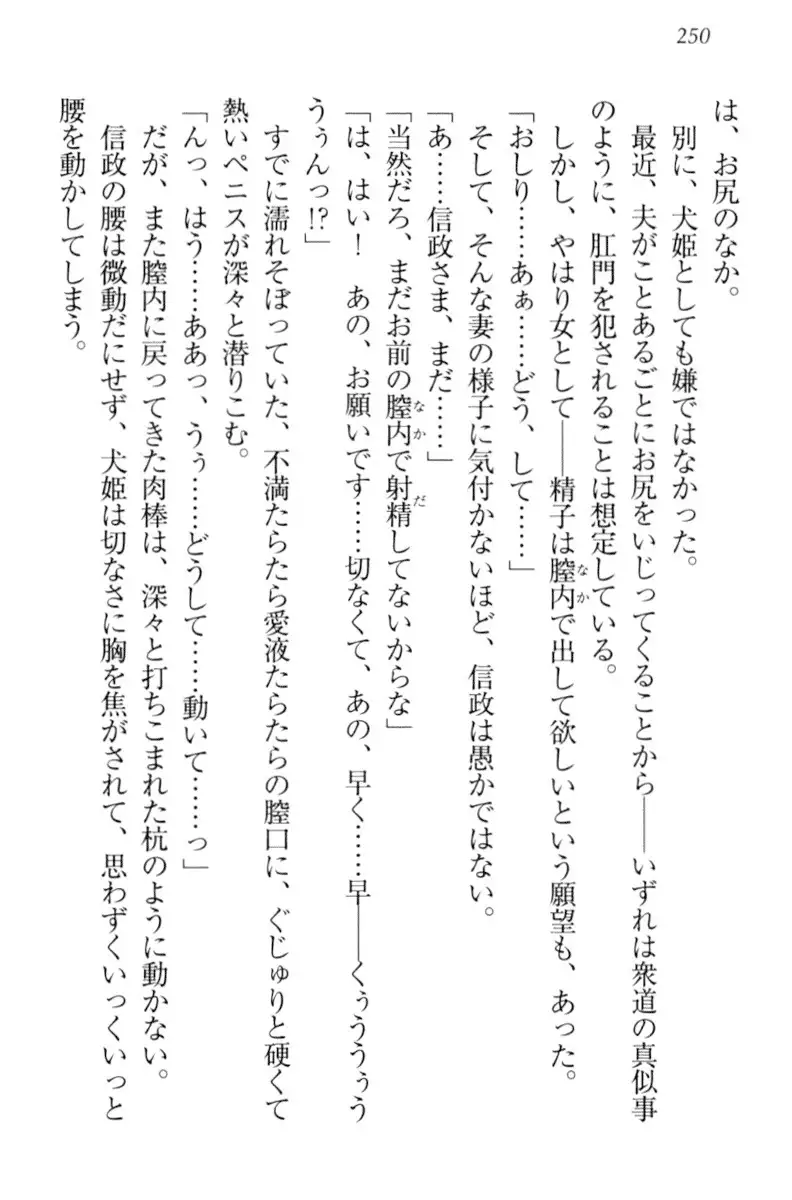 250
は、お尻のなか。
別に、犬姫としても嫌ではなかった。
最近、夫がことあるごとにお尻をいじってくることから――いずれは衆道の真似事
のように、肛門を犯されることは想定している。
しかし、やはり女として――精子は膣内で出して欲しいという願望も、あった。
「おしり……あぁ……どう、して……」
そして、そんな妻の様子に気付かないほど、信政は愚かではない。
「あ……信政さま、まだ……」
「当然だろ、まだお前の膣内で射精してないからな」
「は、はい！　あの、お願いです……切なくて、あの、早く……早――くぅううぅう
うぅんっ!?」
すでに濡れそぼっていた、不満たらたら愛液たらたらの膣口に、ぐじゅりと硬くて
熱いペニスが深々と潜りこむ。
「んっ、はう……ああっ、うぅ……どうして……動いて……っ」
だが、また膣内に戻ってきた肉棒は、深々と打ちこまれた杭のように動かない。
信政の腰は微動だにせず、犬姫は切なさに胸を焦がされて、思わずくいっくいっと
腰を動かしてしまう。